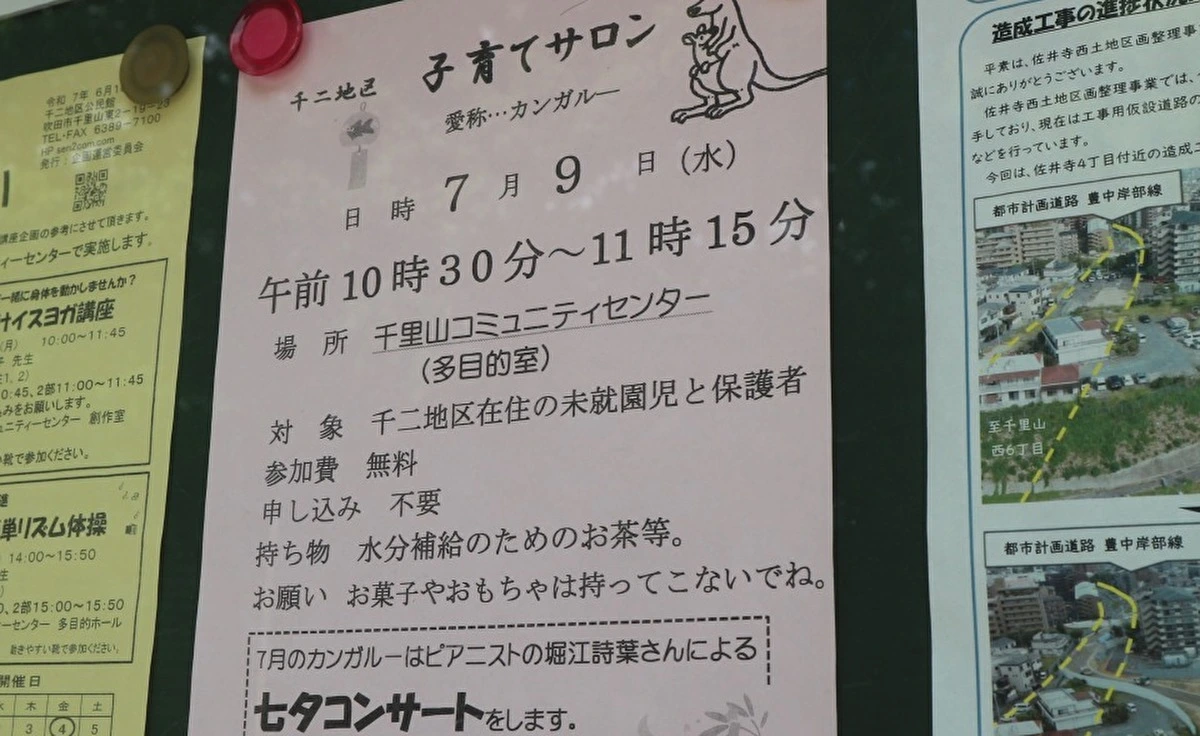 令和 7年 6月1
千二地区公民館
吹田市千里山東2-19-23
TEL・FAX 6389-7100
HP sen2com.com
発行：企画運営委員会
講座企画の参考にさせて頂きます。
ィーセンターで実施します。
一緒に身体を動かしませんか？
けイスヨガ講座
(月) 10:00～11:45
先生
0:45、2部11:00～11:45
込みをお願いします。
ュニティーセンター 創作室
い靴で参加ください。
単リズム体操
14:00～15:50
0、2部15:00～15:50
ィーセンター 多目的ホール
動きやすい靴で参加ください。
開催日
木 金 土
3 4 5
千二地区 子育てサロン
愛称…カンガルー
日時 7月9日(水)
午前10時30分～11時15分
場所 千里山コミュニティセンター
(多目的室)
対象 千二地区在住の未就園児と保護者
参加費 無料
申し込み 不要
持ち物 水分補給のためのお茶等。
お願い お菓子やおもちゃは持ってこないでね。
7月のカンガルーはピアニストの堀江詩葉さんによる
七夕コンサートをします。
造成工事の進捗状況
平素は、佐井寺西土地区画整理事
誠にありがとうございます。
佐井寺西土地区画整理事業では、
手しており、現在は工事用仮設道路の
などを行っています。
今回は、佐井寺4丁目付近の造成工
都市計画道路 豊中岸部線
至千里山
西6丁目
都市計画道路 豊中岸部線